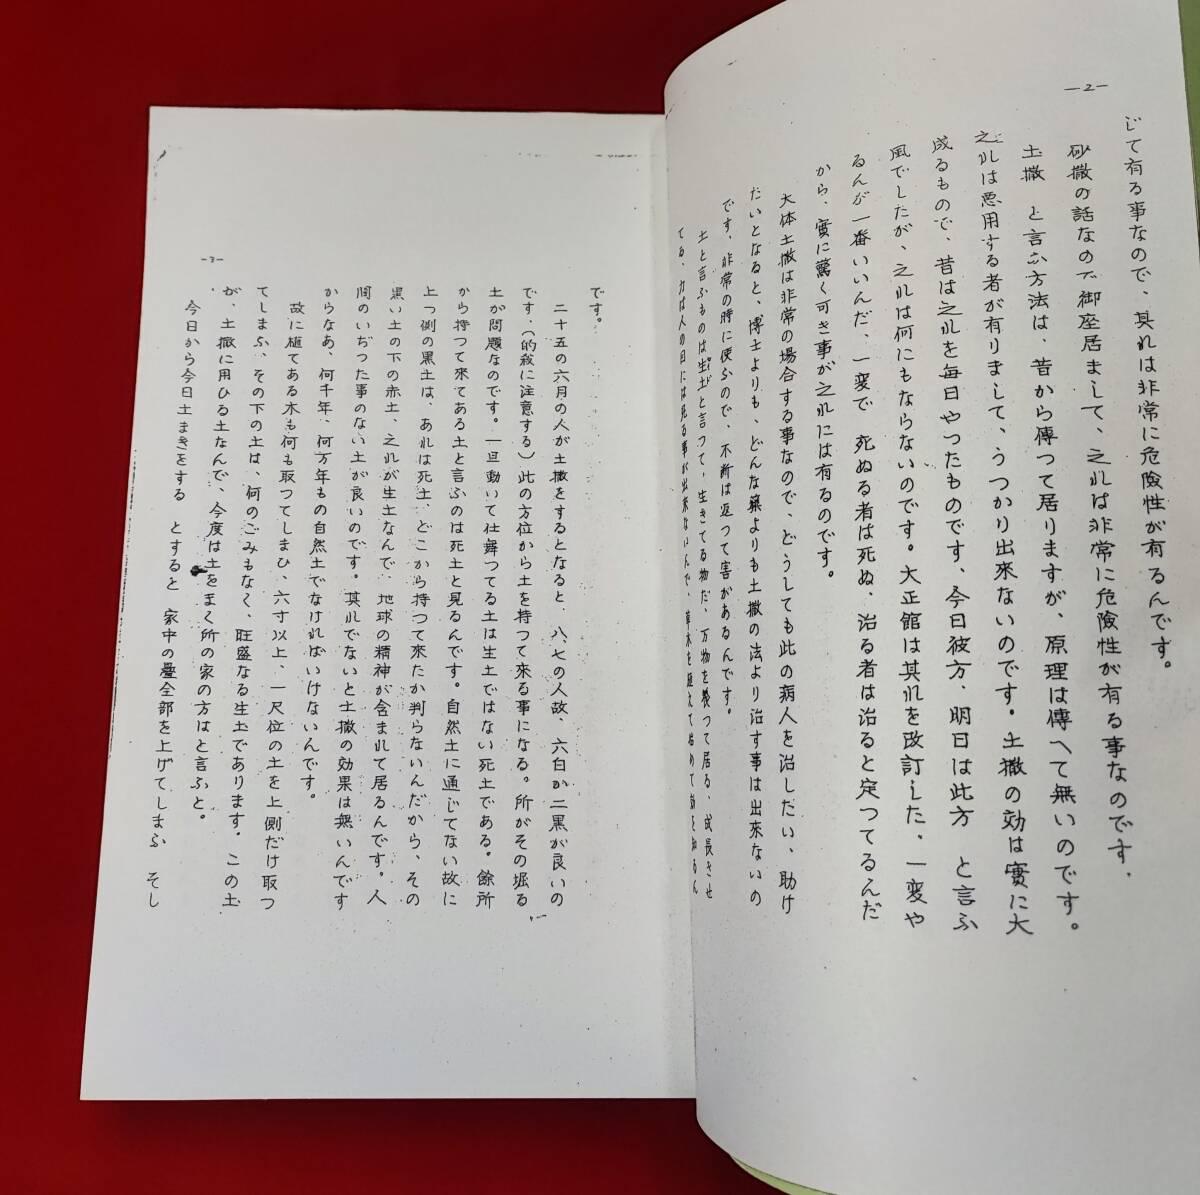 —2—
じて有る事なので、其れは非常に危險性が有るんです。
砂撒の話なので御座居まして、之れは非常に危險性が有る事なのです．
土撒　と言ふ方法は、昔から傳つて居りますが、原理は傳へて無いのです。
之れは悪用する者が有りまして、うつかり出來ないのです。土撒の効は實に大
成るもので、昔は之れを毎日やつたものです、今日彼方、明日は此方　と言ふ
風でしたが、之れは何にもならないのです。大正館は其れを改訂した、一変や
るんが一番いいんだ、一変で　死ぬる者は死ぬ、治る者は治ると定つてるんだ
から、實に驚く可き事が之れには有るのです。
大体土撒は非常の場合する事なので、どうしても此の病人を治したい、助け
たいとなると、博士よりも、どんな藥よりも土撒の法より治す事は出來ないの
です、非常の時に使ふので、不断は返つて害があるんです。
土と言ふものは生土と言つて，生きてる物だ、万物を養つて居る、成長させ
てる、力は人の目には見る事が出來ないんで、草木を植えて始めて
—3—
です。
二十五の六月の人が土撒をするとなると、八、七の人故、六白か二黒が良いの
です、（的殺に注意する）此の方位から土を持つて来る事になる。所がその堀る
土が問題なのです。一旦動いて仕舞つてる土は生土ではない死土である。餘所
から持つて來てある土と言ふのは死土と見るんです。自然土に通じてない故に
上つ側の黒土は、あれは死土、どこから持つて來たか判らないんだから、その
黒い土の下の赤土、之れが生土なんで、地球の精神が含まれて居るんです。人
間のいぢつた事のない土が良いのです。其れでないと土撒の効果は無いんです
からなあ、何千年、何万年もの自然土でなければいけないんです。
故に植てある木も何も取つてしまひ、六寸以上、一尺位の土を上側だけ取つ
てしまふ、その下の土は、何のごみもなく、旺盛なる生土であります。この土
が、土撒に用ひる土なんで、今度は土をまく所の家の方はと言ふと。
今日から今日土まきをする　とすると　家中の疊全部を上げてしまふ　そし